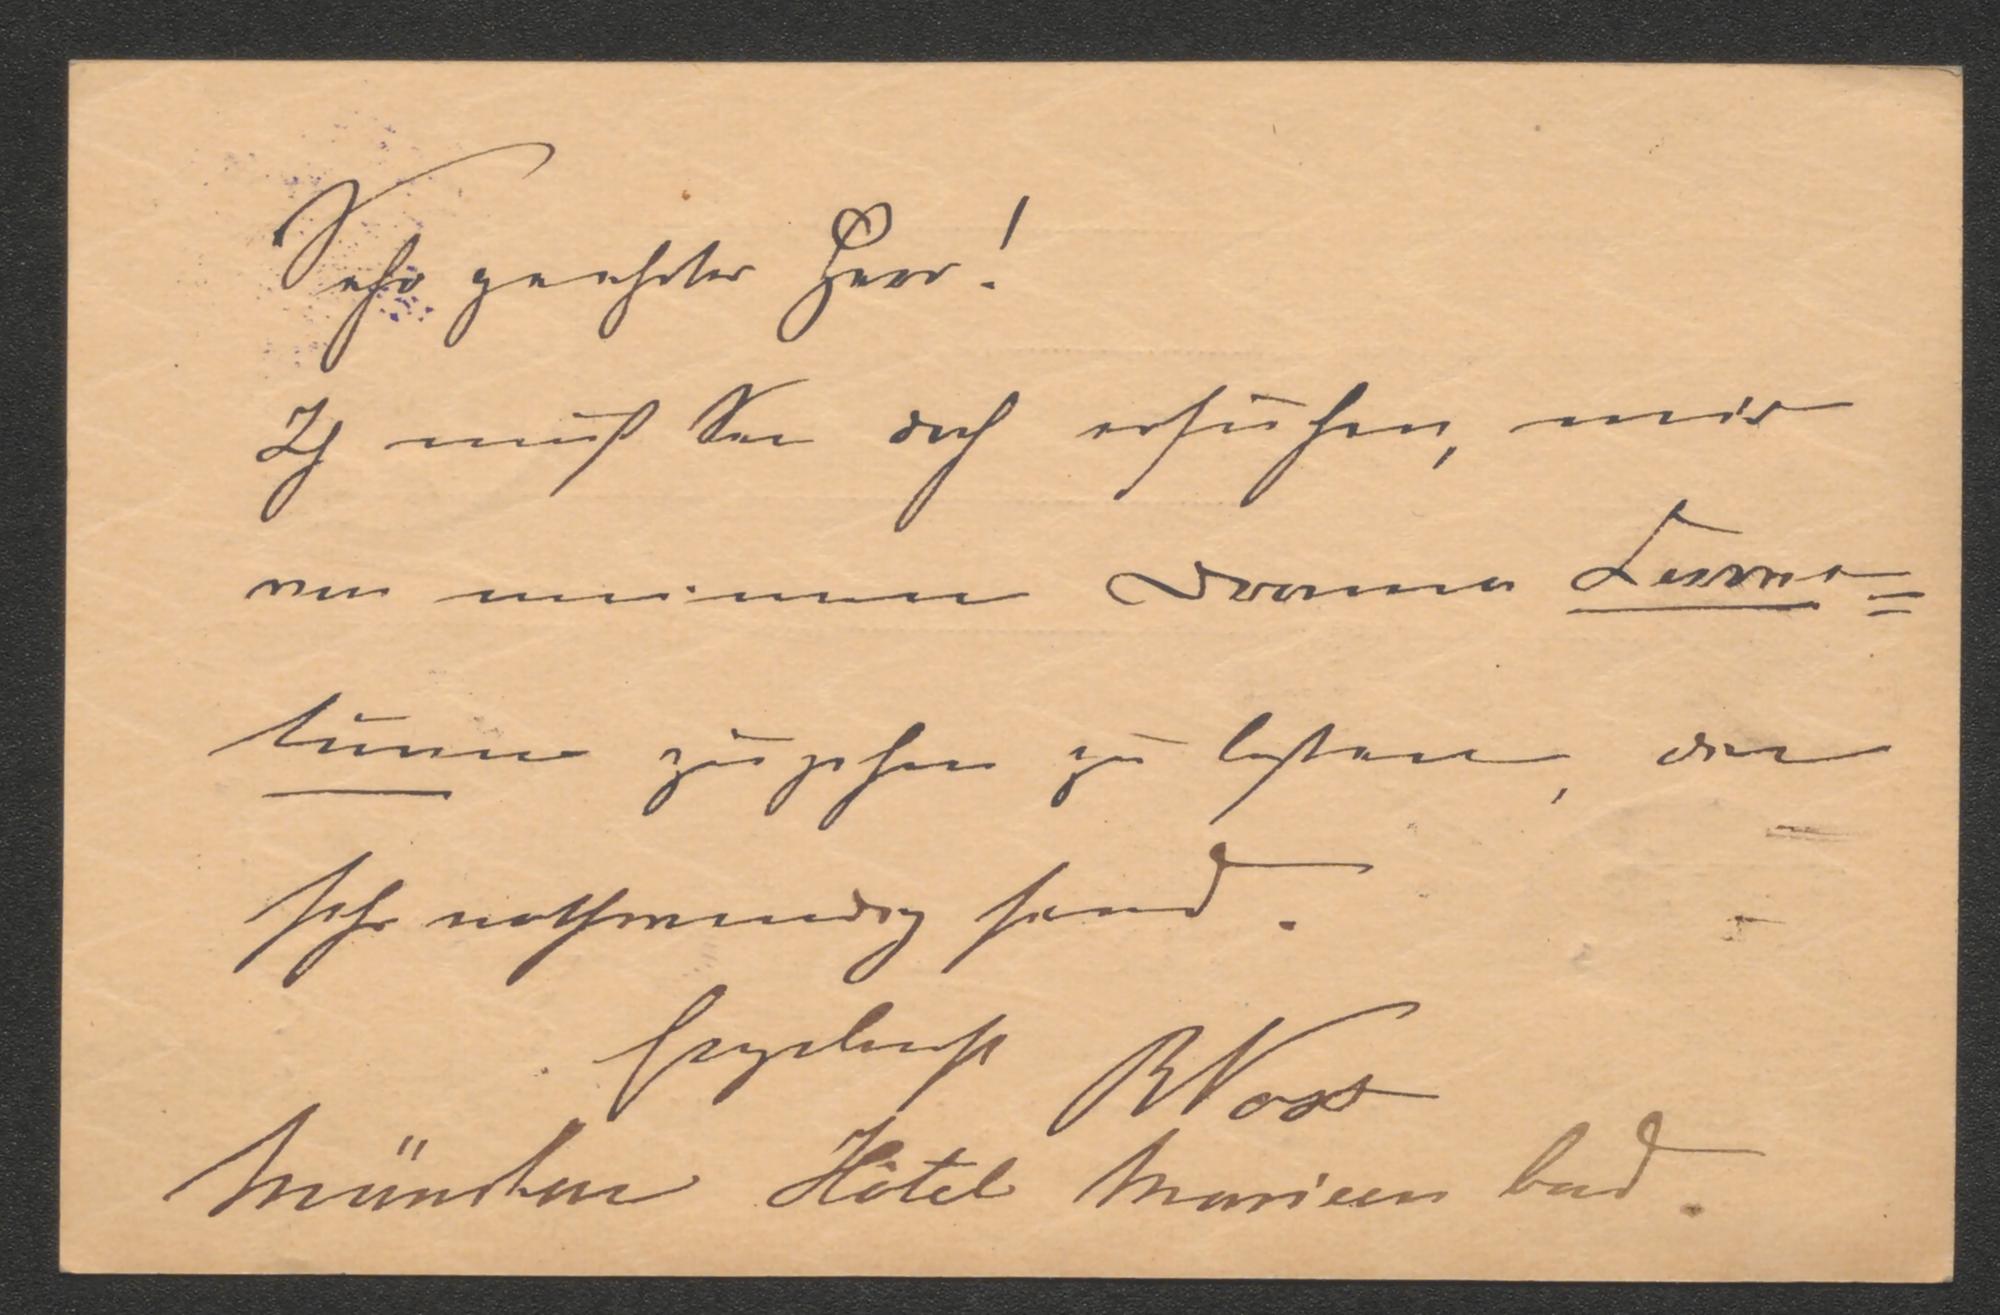 Sehr geehrter Herr!
Ich muß Sie doch ersuchen, mir
von meinem Drama Correc=
turen zugehen zu lassen, die
sehr nothwendig sind.
Ergebenst RVoss
München Hôtel Marienbad.